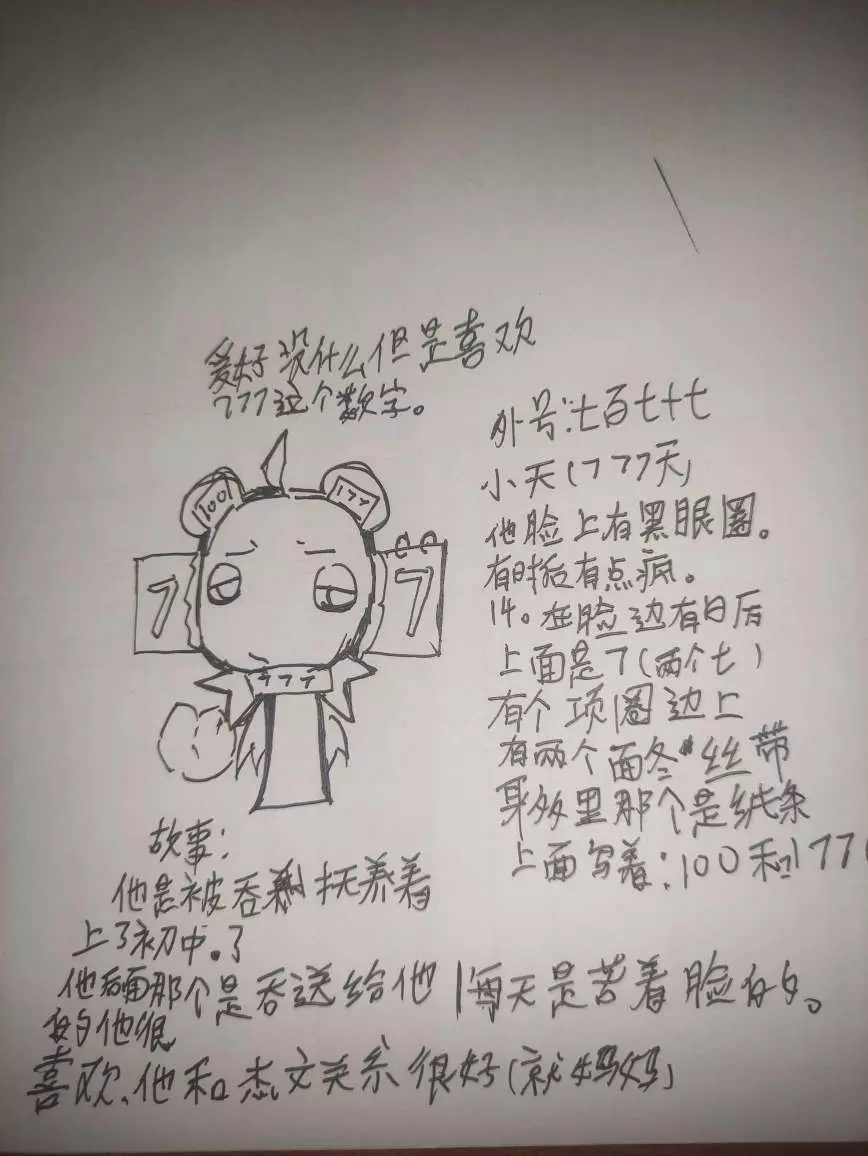 爱好没什么但是喜欢
777这个数字。
外号:七百七十七
小天(777天)
他脸上有黑眼圈。
有时后有点疯。
14。在脸边有日历
上面是7(两个七)
有个项圈边上
有两个面冬丝带
耳多里那个是纸条
上面写着:100和177
1001
177
7
7
777
故事:
他是被吞 抚养着
上了初中。了
他后面那个是吞送给他
的他很
每天是苦着脸的。
喜欢、他和杰文关系很好(就妈妈)